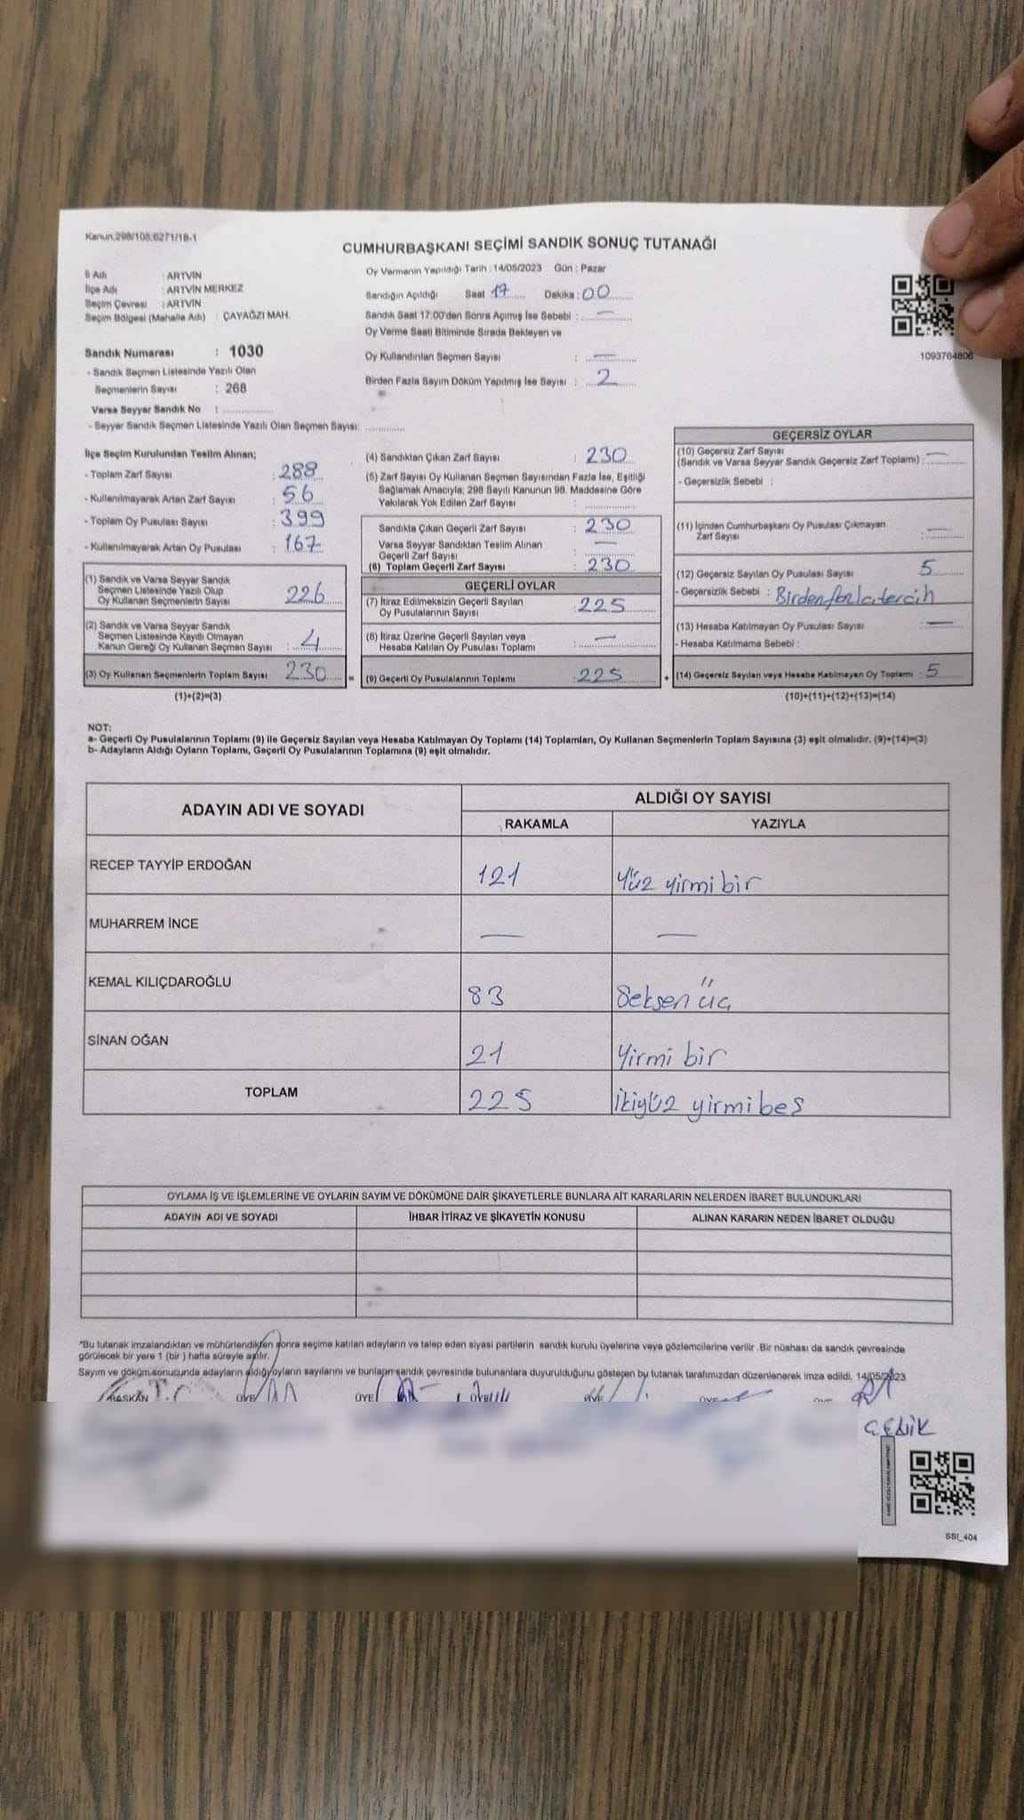 Kanun:298/105;6271/18-1
CUMHURBAŞKANI SEÇİMİ SANDIK SONUÇ TUTANAĞI
İl Adı : ARTVİN
İlçe Adı : ARTVİN MERKEZ
Seçim Çevresi : ARTVİN
Seçim Bölgesi (Mahalle Adı) : ÇAYAĞZI MAH.
Sandık Numarası : 1030
- Sandık Seçmen Listesinde Yazılı Olan
Seçmenlerin Sayısı : 268
Varsa Seyyar Sandık No :
- Seyyar Sandık Seçmen Listesinde Yazılı Olan Seçmen Sayısı:
Oy Vermenin Yapıldığı Tarih :14/05/2023 Gün : Pazar
Sandığın Açıldığı Saat 17 Dakika : 00
Sandık Saat 17:00'den Sonra Açımış İse Sebebi : —
Oy Verme Saati Bitiminde Sırada Bekleyen ve
Oy Kullandırılan Seçmen Sayısı : —
Birden Fazla Sayım Döküm Yapılmış İse Sayısı : 2
1093764806
İlçe Seçim Kurulundan Teslim Alınan;
- Toplam Zarf Sayısı : 288
- Kullanılmayarak Artan Zarf Sayısı : 56
- Toplam Oy Pusulası Sayısı : 399
- Kullanılmayarak Artan Oy Pusulası : 167
(1) Sandık ve Varsa Seyyar Sandık
Seçmen Listesinde Yazılı Olup
Oy Kullanan Seçmenlerin Sayısı : 226
(2) Sandık ve Varsa Seyyar Sandık
Seçmen Listesinde Kayıtlı Olmayan
Kanun Gereği Oy Kullanan Seçmen Sayısı : 4
(3) Oy Kullanan Seçmenlerin Toplam Sayısı : 230 =
(1)+(2)=(3)
(4) Sandıktan Çıkan Zarf Sayısı : 230
(5) Zarf Sayısı Oy Kullanan Seçmen Sayısından Fazla İse, Eşitliği
Sağlamak Amacıyla, 298 Sayılı Kanunun 98. Maddesine Göre
Yakılarak Yok Edilen Zarf Sayısı :
Sandıkta Çıkan Geçerli Zarf Sayısı : 230
Varsa Seyyar Sandıktan Teslim Alınan
Geçerli Zarf Sayısı : —
(6) Toplam Geçerli Zarf Sayısı : 230
GEÇERLİ OYLAR
(7) İtiraz Edilmeksizin Geçerli Sayılan
Oy Pusulalarının Sayısı : 225
(8) İtiraz Üzerine Geçerli Sayılan veya
Hesaba Katılan Oy Pusulası Toplamı : —
(9) Geçerli Oy Pusulalarının Toplamı : 225 +
GEÇERSİZ OYLAR
(10) Geçersiz Zarf Sayısı
(Sandık ve Varsa Seyyar Sandık Geçersiz Zarf Toplamı) : —
- Geçersizlik Sebebi :
(11) İçinden Cumhurbaşkanı Oy Pusulası Çıkmayan
Zarf Sayısı : —
(12) Geçersiz Sayılan Oy Pusulası Sayısı : 5
- Geçersizlik Sebebi : Birden fazla tercih
(13) Hesaba Katılmayan Oy Pusulası Sayısı : —
- Hesaba Katılmama Sebebi :
(14) Geçersiz Sayılan veya Hesaba Katılmayan Oy Toplamı : 5
(10)+(11)+(12)+(13)=(14)
NOT:
a- Geçerli Oy Pusulalarının Toplamı (9) ile Geçersiz Sayılan veya Hesaba Katılmayan Oy Toplamı (14) Toplamları, Oy Kullanan Seçmenlerin Toplam Sayısına (3) eşit olmalıdır. (9)+(14)=(3)
b- Adayların Aldığı Oyların Toplamı, Geçerli Oy Pusulalarının Toplamına (9) eşit olmalıdır.
ADAYIN ADI VE SOYADI ALDIĞI OY SAYISI
RAKAMLA YAZIYLA
RECEP TAYYİP ERDOĞAN 121 Yüz yirmi bir
MUHARREM İNCE — —
KEMAL KILIÇDAROĞLU 83 Seksen üç
SİNAN OĞAN 21 Yirmi bir
TOPLAM 225 İkiyüz yirmi beş
OYLAMA İŞ VE İŞLEMLERİNE VE OYLARIN SAYIM VE DÖKÜMÜNE DAİR ŞİKAYETLERLE BUNLARA AİT KARARLARIN NELERDEN İBARET BULUNDUKLARI
ADAYIN ADI VE SOYADI İHBAR İTİRAZ VE ŞİKAYETİN KONUSU ALINAN KARARIN NEDEN İBARET OLDUĞU
*Bu tutanak imzalandıktan ve mühürlendikten sonra seçime katılan adayların ve talep eden siyasi partilerin sandık kurulu üyelerine veya gözlemcilerine verilir .Bir nüshası da sandık çevresinde
görülecek bir yere 1 (bir ) hafta süreyle asılır.
Sayım ve döküm sonucunda adayların aldığı oyların sayılarını ve bunların sandık çevresinde bulunanlara duyurulduğunu gösteren bu tutanak tarafımızdan düzenlenerek imza edildi. 14/05/2023
BAŞKAN ÜYE ÜYE ÜYE ÜYE ÜYE
ÇELİK
SSI_404